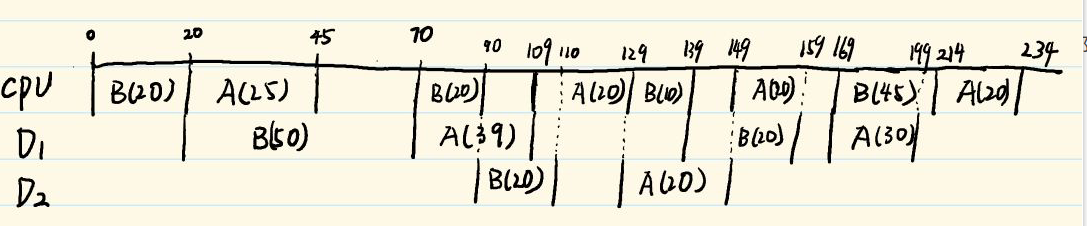 0 20 45 70 90 109 110 129 139 149 159 169 199 214 234
CPU B(20) A(25) B(20) A(20) B(10) A(20) B(45) A(20)
D1 B(50) A(39) B(20) A(30)
D2 B(20) A(20)